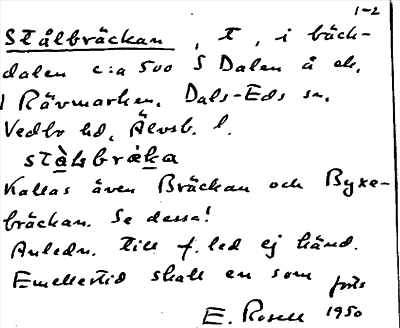 1-2
Stålbräckan, T, i bäck-
dalen c:a 500 S Dalen å ek.
1 Rävmarken. Dals-Eds sn.
Vedbo hd, Älvsb. l.
stålsbräka
Kallas även Bräckan och Byxe-
bräckan. Se dessa!
Anledn. till f. led ej känd.
Emellertid skall en som forts
E. Rosell 1950